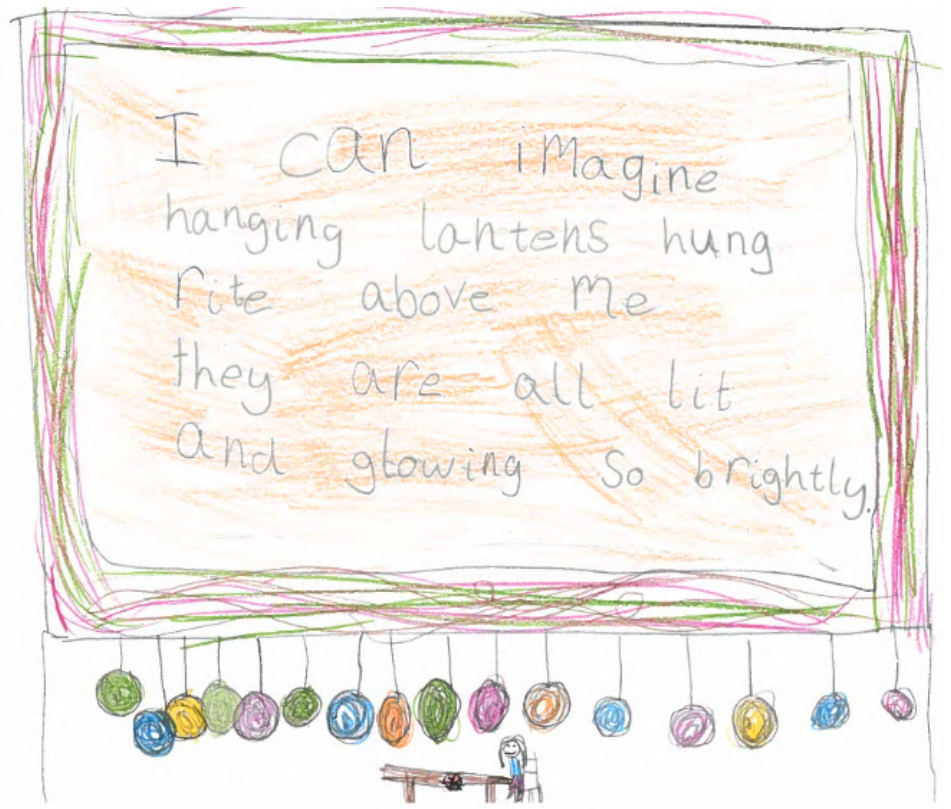 I can imagine
hanging lantens hung
rite above me
they are all lit
and glowing so brightly.